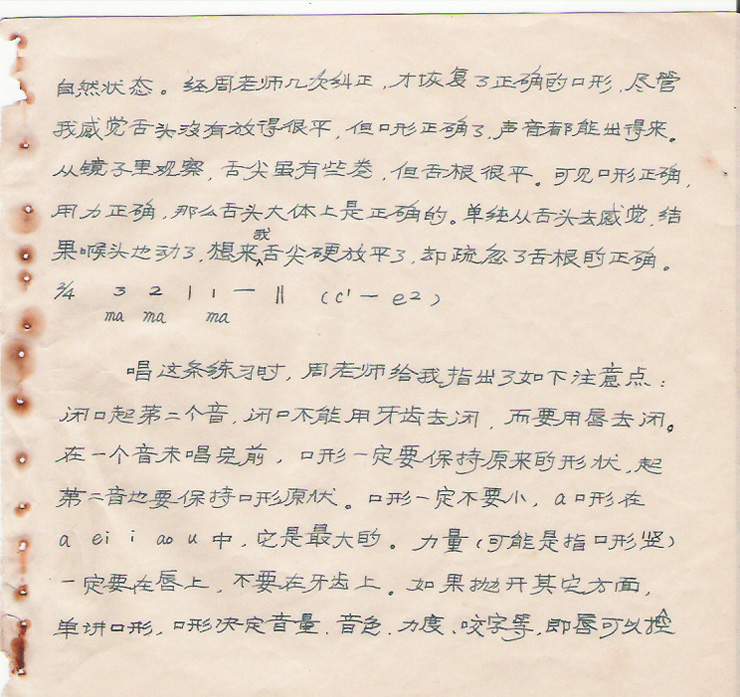 自然状态。经周老师几次纠正，才恢复了正确的口形，尽管
我感觉舌头没有放得很平，但口形正确了，声音都能出得来。
从镜子里观察，舌尖虽有些卷，但舌根很平。可见口形正确，
用力正确，那么舌头大体上是正确的。单纯从舌头去感觉，结
果喉头也动了，想来我舌尖硬放平了，却疏忽了舌根的正确。
2/4 3 2 | 1 — || (c¹ — e²)
ma ma ma
唱这条练习时，周老师给我指出了如下注意点：
闭口起第二个音，闭口不能用牙齿去闭，而要用唇去闭。
在一个音未唱完前，口形一定要保持原来的形状，起
第二音也要保持口形原状。口形一定不要小，a口形在
a ei i ao u 中，它是最大的。力量（可能是指口形竖）
一定要在唇上，不要在牙齿上。如果抛开其它方面，
单讲口形，口形决定音量、音色、力度、咬字等，即唇可以控